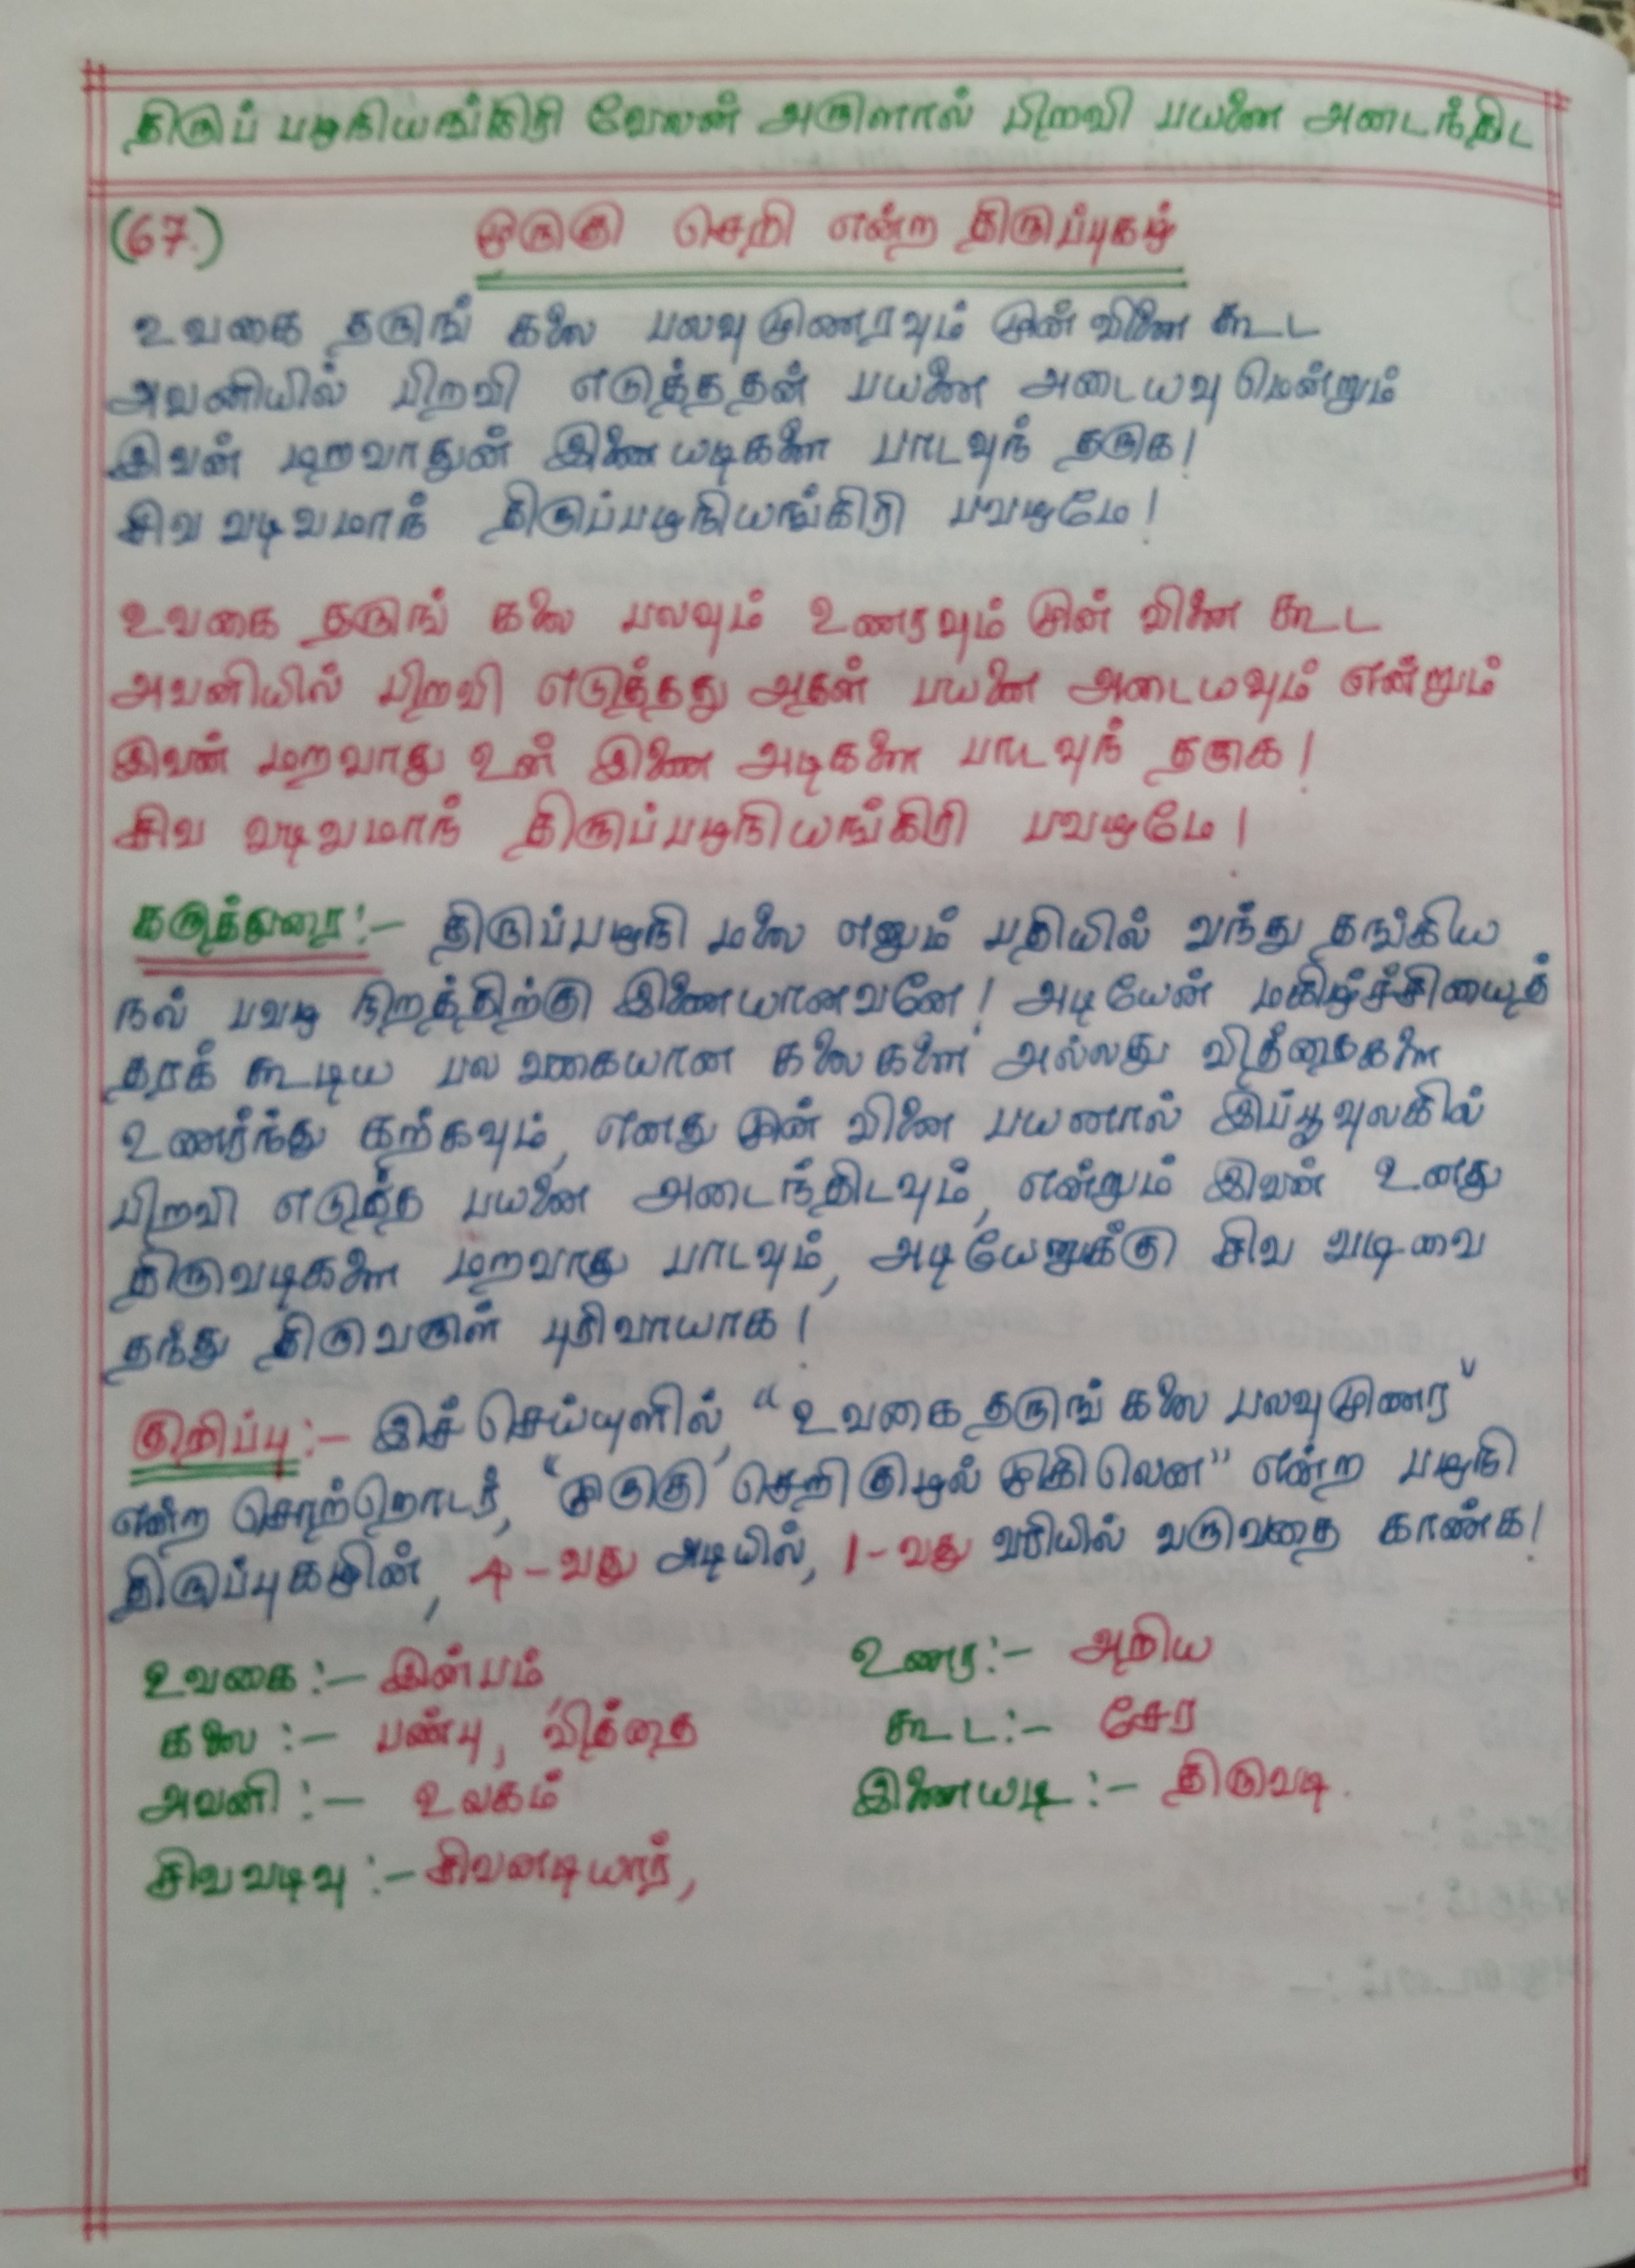 திருப் பழநியங்கிரி வேலன் அருளால் பிறவி பயனை அடைந்திட
(67.) முருகு செறி என்ற திருப்புகழ்
உவகை தருங் கலை பலவு முணரவும் முன் வினை கூட
அவனியில் பிறவி எடுத்ததன் பயனை அடையவு மென்றும்
இவன் மறவாதுன் இணையடிகளை பாடவுந் தருக!
சிவ வடிவமாந் திருப்பழநியங்கிரி பவழமே!
உவகை தருங் கலை பலவும் உணரவும் முன் வினை கூட
அவனியில் பிறவி எடுத்தது அதன் பயனை அடையவும் என்றும்
இவன் மறவாது உன் இணை அடிகளை பாடவுந் தருக!
சிவ வடிவமாந் திருப்பழநியங்கிரி பவழமே!
கருத்துரை:- திருப்பழநி மலை எனும் பதியில் வந்து தங்கிய
நல் பவழ நிறத்திற்கு இணையானவனே! அடியேன் மகிழ்ச்சியைத்
தரக் கூடிய பல வகையான கலைகளை அல்லது வித்தைகளை
உணர்ந்து கற்கவும், எனது முன் வினை பயனால் இப்பூவுலகில்
பிறவி எடுத்த பயனை அடைந்திடவும், என்றும் இவன் உனது
திருவடிகளை மறவாது பாடவும், அடியேனுக்கு சிவ வடிவை
தந்து திருவருள் புரிவாயாக!
குறிப்பு:- இச் செய்யுளில், "உவகை தருங் கலை பலவு முணர"
என்ற சொற்றொடர், "முருகு செறி குழல் முகிலென" என்ற பழநி
திருப்புகழின், 4-வது அடியில், 1-வது வரியில் வருவதை காண்க!
உவகை:- இன்பம் உணர:- அறிய
கலை:- பண்பு, வித்தை கூட:- சேர
அவனி:- உலகம் இணையடி:- திருவடி.
சிவ வடிவு:- சிவனடியார்,